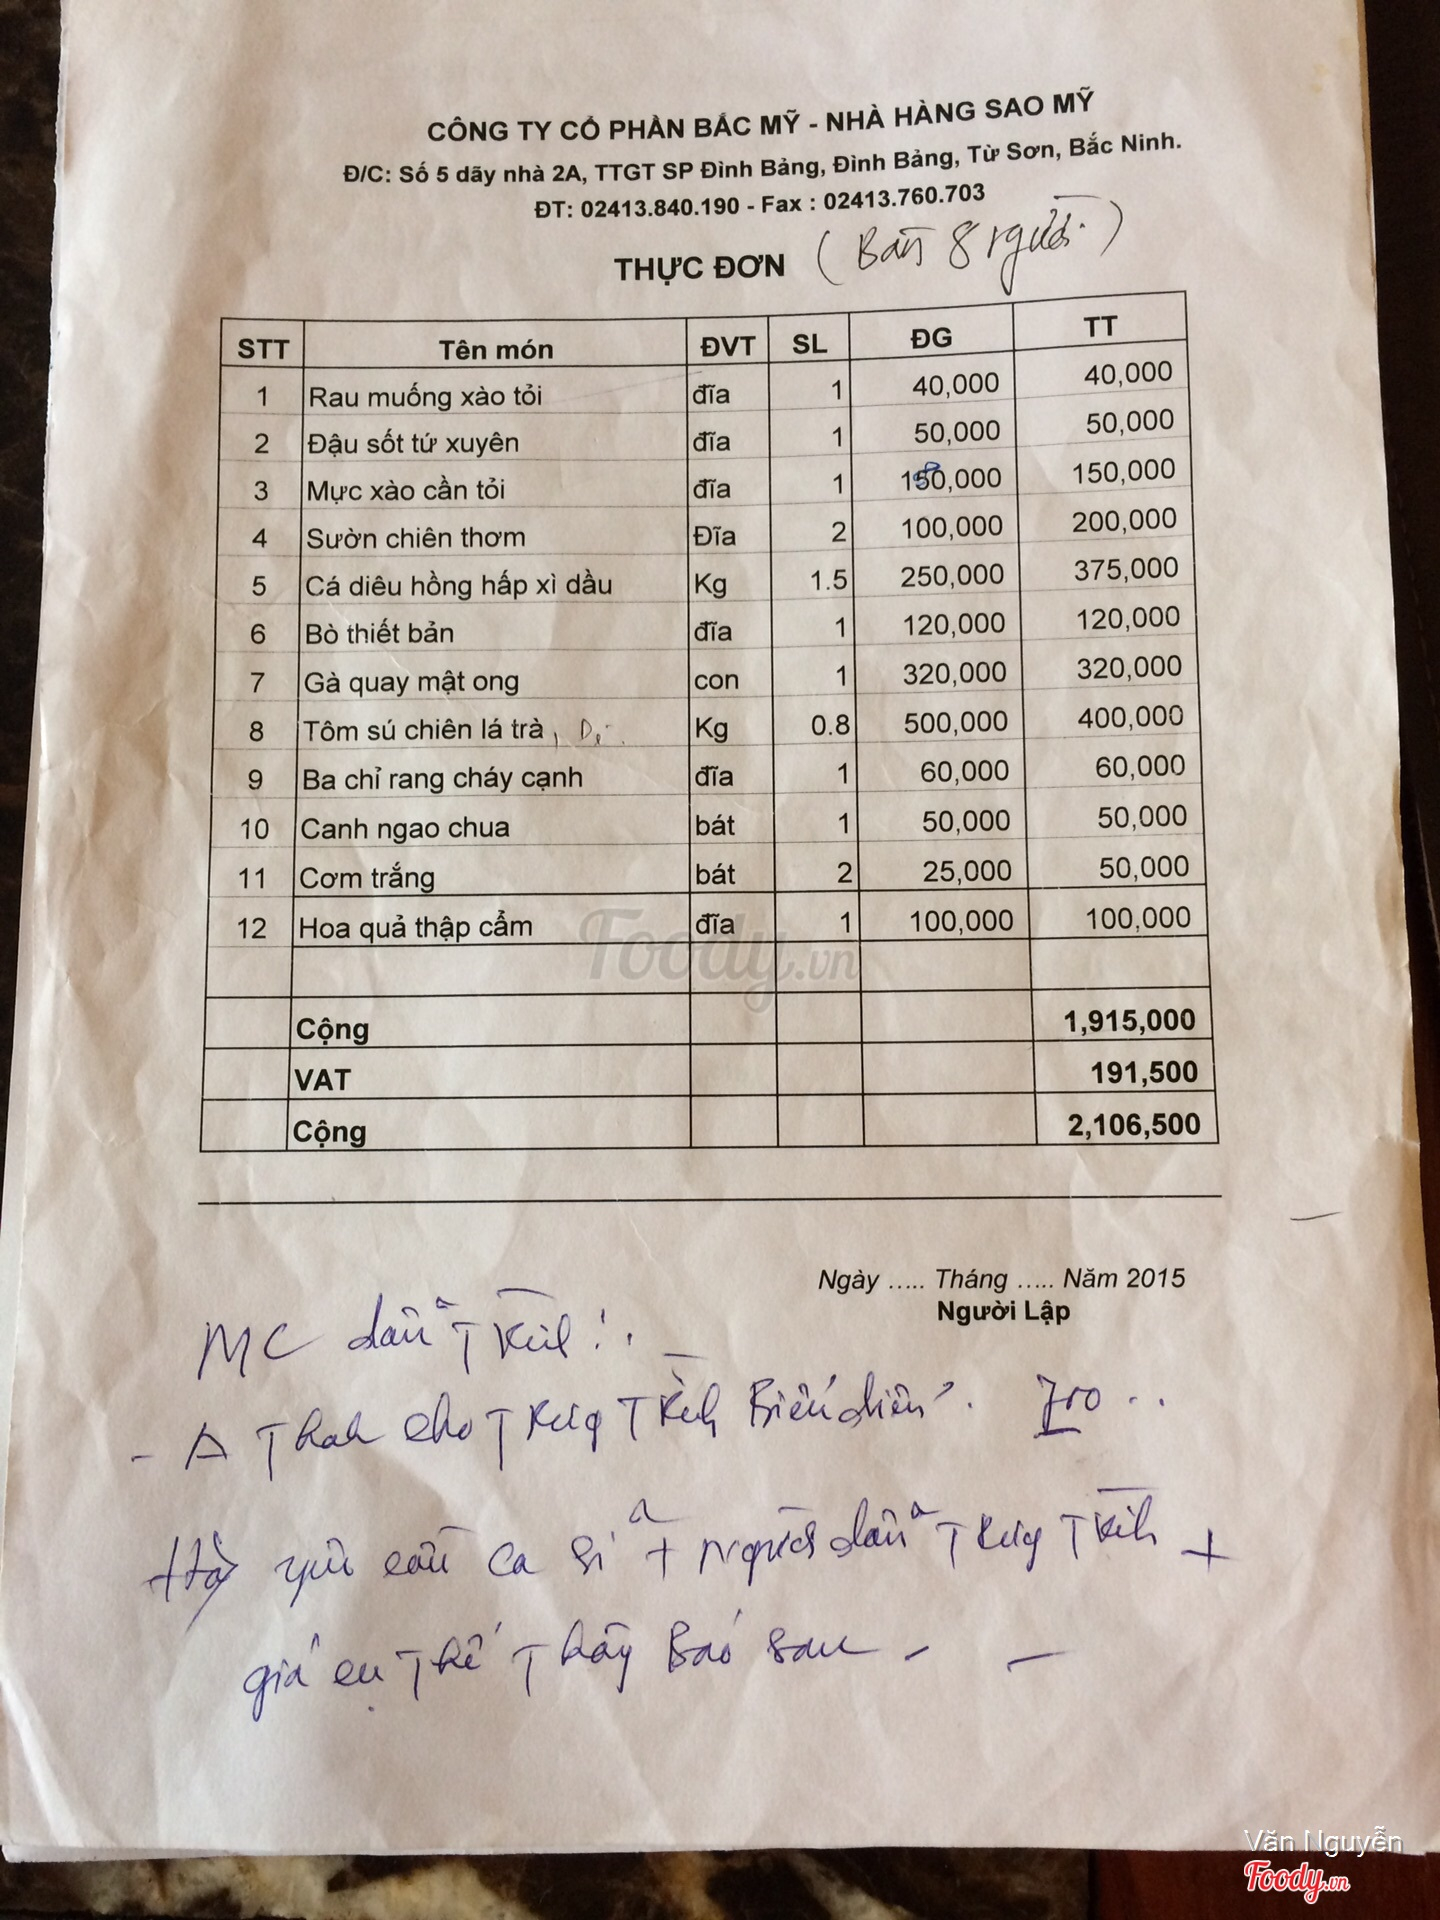 CÔNG TY CỔ PHẦN BẮC MỸ - NHÀ HÀNG SAO MỸ
Đ/C: Số 5 dãy nhà 2A, TTGT SP Đình Bảng, Đình Bảng, Từ Sơn, Bắc Ninh.
ĐT: 02413.840.190 - Fax : 02413.760.703
THỰC ĐƠN (Bàn 8 người.)
STT Tên món ĐVT SL ĐG TT
1 Rau muống xào tỏi đĩa 1 40,000 40,000
2 Đậu sốt tứ xuyên đĩa 1 50,000 50,000
3 Mực xào cần tỏi đĩa 1 150,000 150,000
4 Sườn chiên thơm Đĩa 2 100,000 200,000
5 Cá diêu hồng hấp xì dầu Kg 1.5 250,000 375,000
6 Bò thiết bản đĩa 1 120,000 120,000
7 Gà quay mật ong con 1 320,000 320,000
8 Tôm sú chiên lá trà Kg 0.8 500,000 400,000
9 Ba chỉ rang cháy cạnh đĩa 1 60,000 60,000
10 Canh ngao chua bát 1 50,000 50,000
11 Cơm trắng bát 2 25,000 50,000
12 Hoa quả thập cẩm đĩa 1 100,000 100,000
Foody.vn
Cộng 1,915,000
VAT 191,500
Cộng 2,106,500
Ngày ..... Tháng ..... Năm 2015
Người Lập
MC dẫn
- A Thanh cho chương trình Biểu diễn.
yêu cầu ca sĩ + người dẫn chương trình +
giá cụ thể Thầy Báo sau -
Văn Nguyễn
Foody.vn